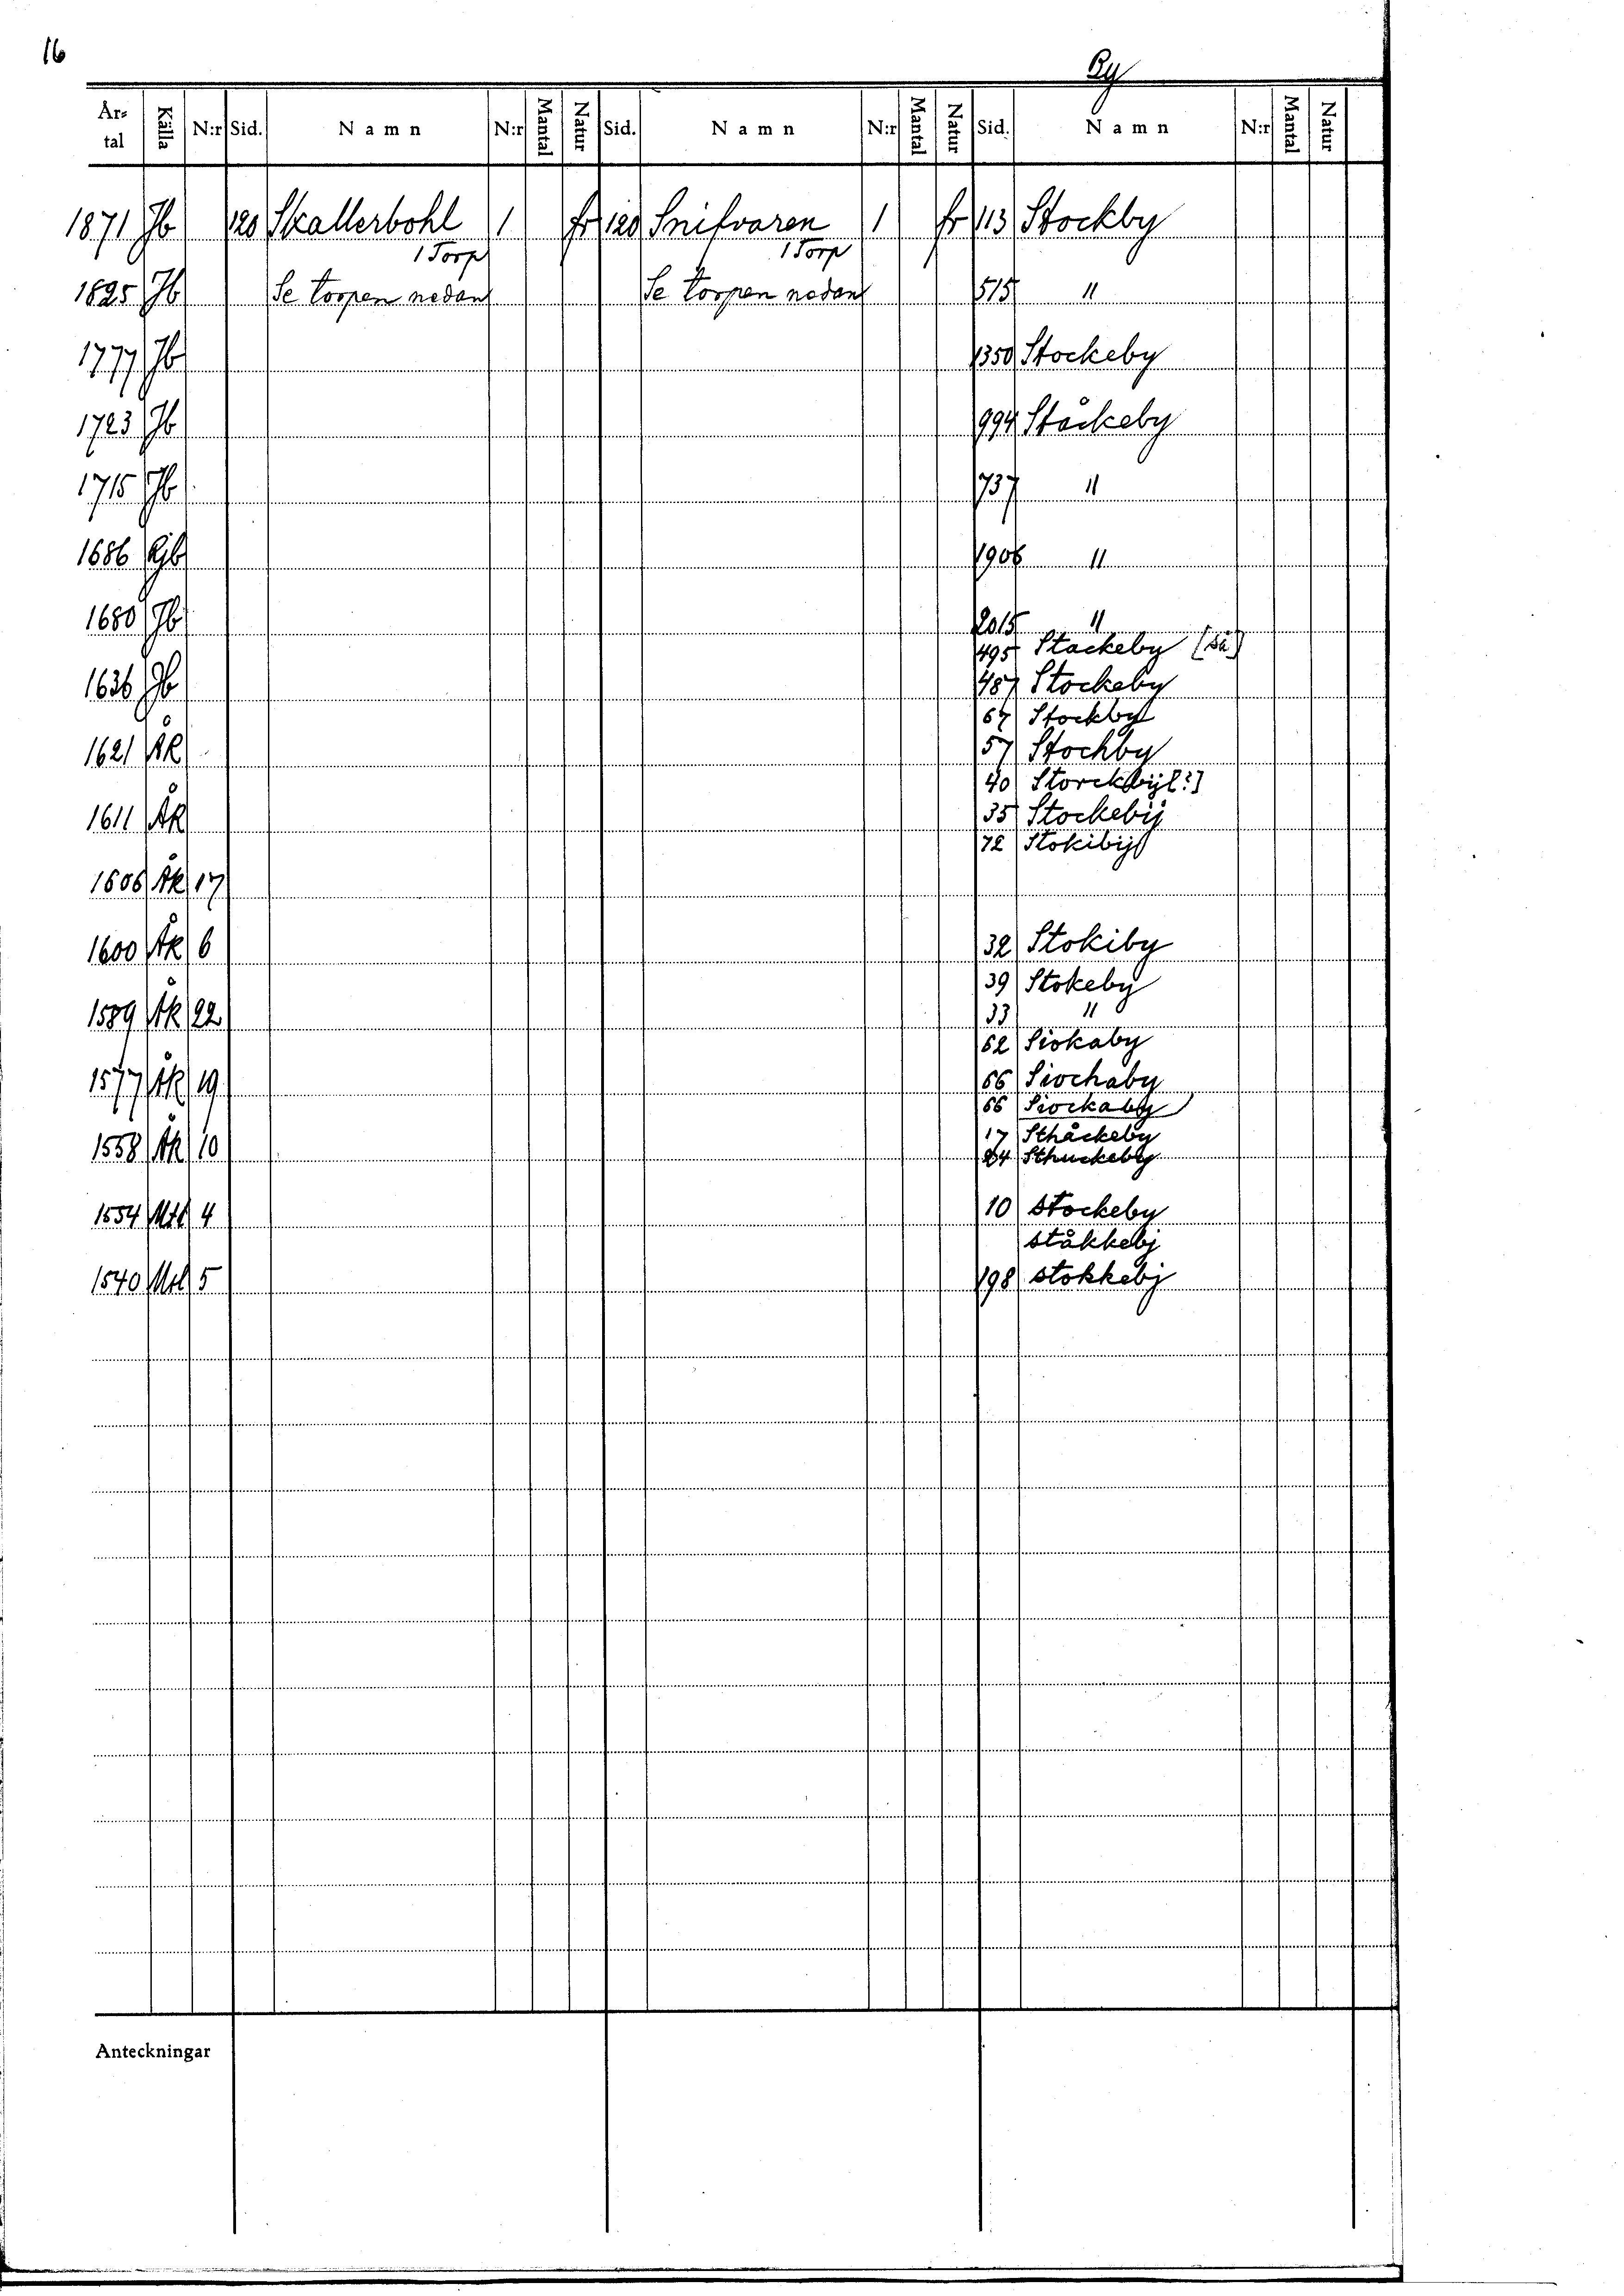 16
By
År-tal Källa N:r Sid. Namn N:r Mantal Natur Sid. Namn N:r Mantal Natur Sid. Namn N:r Mantal Natur
1871 Jb 120 Skallerbohl 1 fr 120 Snifvaren 1 fr 113 Stockby
1 Torp 1 Torp
1825 Jb Se torpen nedan Se torpen nedan 515 "
1777 Jb 1350 Stockeby
1723 Jb 994 Ståckeby
1715 Jb 737 "
1686 Jb 1906 "
1680 Jb 2015 "
495 Stackeby [så]
1636 Jb 487 Stockeby
67 Stockby
1621 ÄK 57 Stochby
40 Storckbij[?]
1611 ÅK 35 Stockebij
72 Stokibij
1606 Åk 17
1600 Åk 6 32 Stokiby
39 Stokeby
1589 Åk 22 33 "
62 Siokaby
1577 Åk 19 66 Siochaby
66 Siockaby
1558 Åk 10 17 Sthåckeby
24 Sthuckeby
1554 Mtl 4 10 stockeby
ståkkebj
1540 Mtl 5 198 stokkebj
Anteckningar